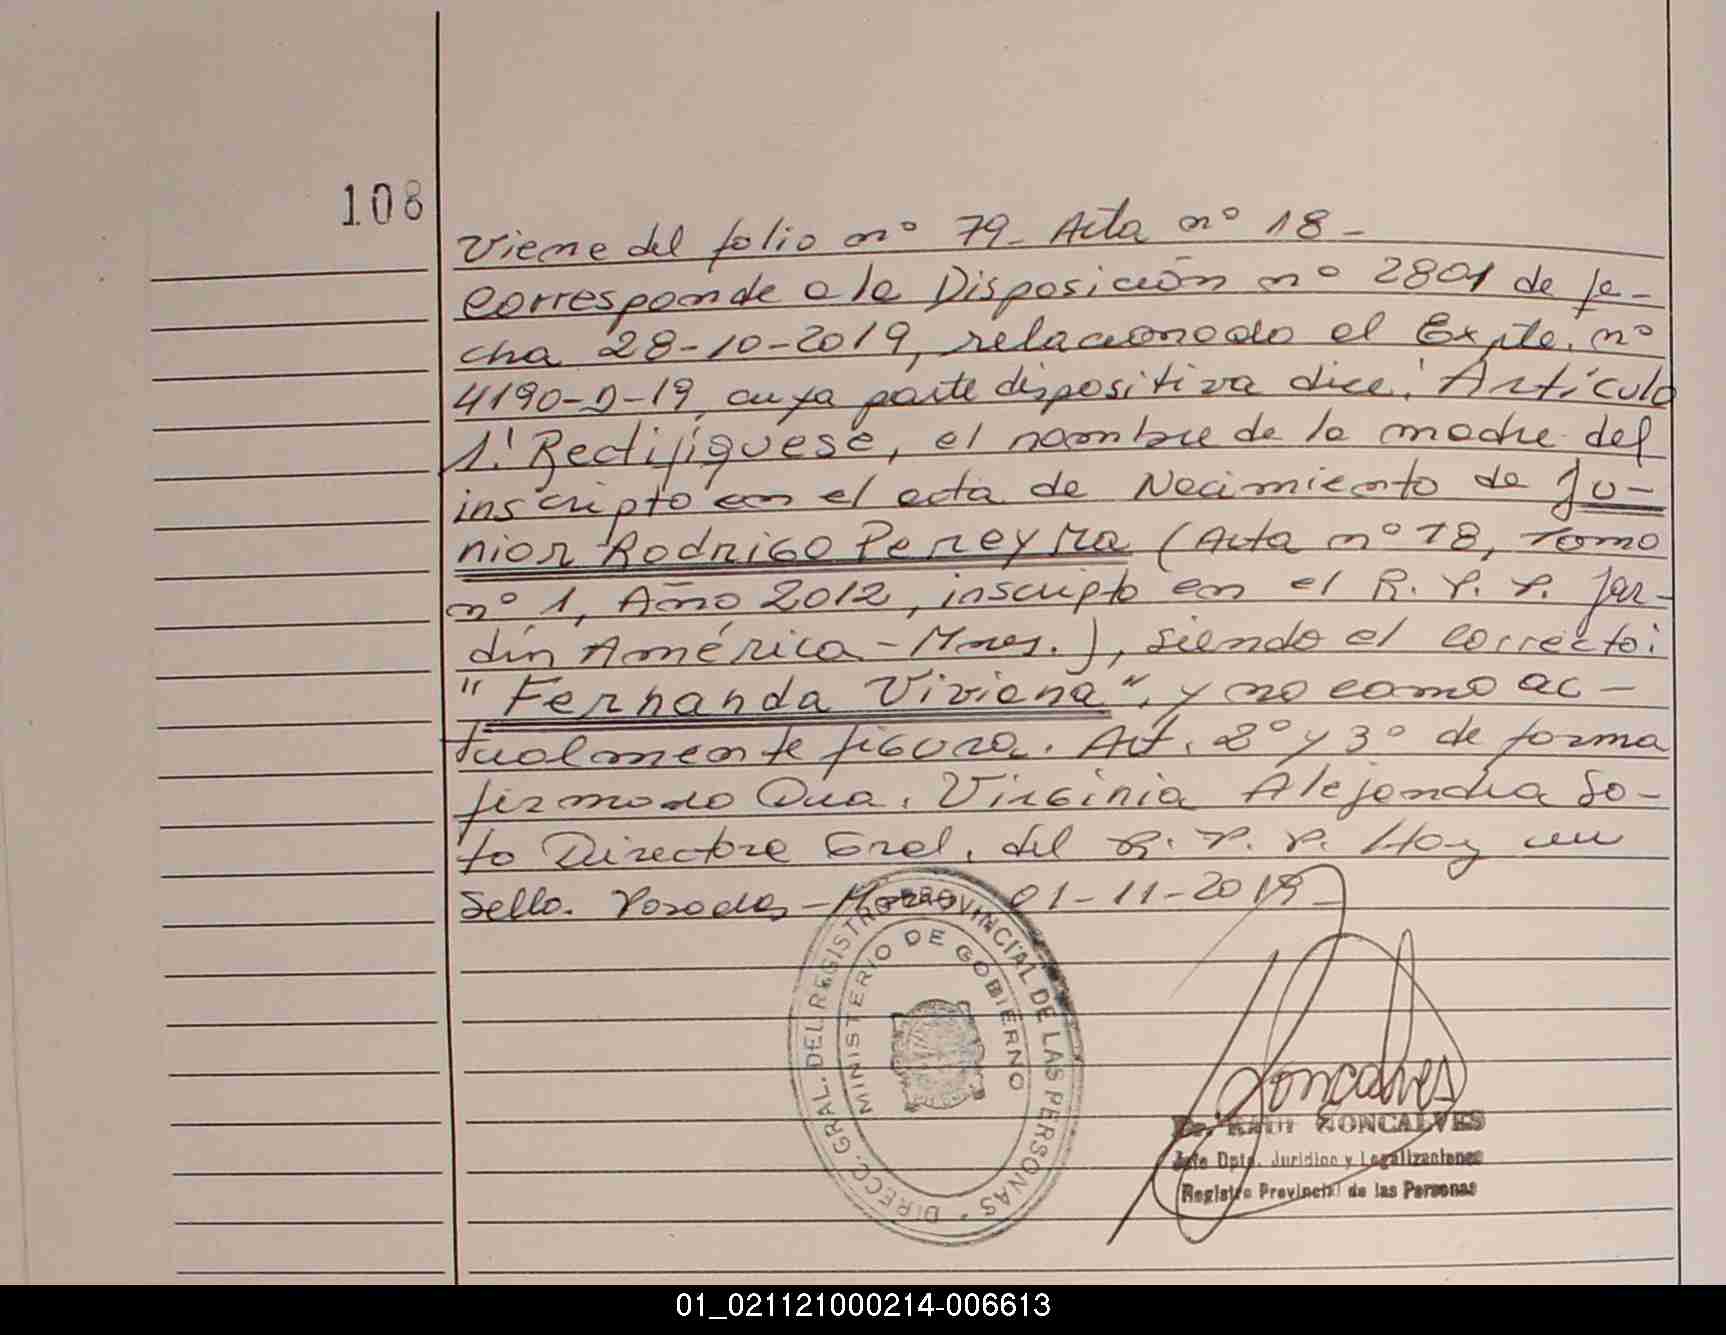 108
Viene del folio nº 79- Acta nº 18-
Corresponde a la Disposición nº 2801 de fe-
cha 28-10-2019, relacionado el Expte. nº
4190-D-19, cuya parte dispositiva dice: Artículo
1: Rectifíquese, el nombre de la madre del
inscripto en el acta de Nacimiento de Ju-
nior Rodrigo Pereyra (Acta nº 18, Tomo
nº 1, Año 2012, inscripto en el R. P. P. Jar-
dín América-Mnes.), siendo el correcto:
"Fernanda Viviana", y no como ac-
tualmente figura. Art. 2º y 3º de forma
firmado Dra. Virginia Alejandra So-
to Directora Gral. del R. P. P. Hay un
Sello. Posadas - 01-11-2019-
DIRECC. GRAL. DEL REGISTRO PROVINCIAL DE LAS PERSONAS
MINISTERIO DE GOBIERNO
Goncalves
Dr. RAUL GONCALVES
Jefe Dpto. Jurídico y Legalizaciones
Registro Provincial de las Personas
01_021121000214-006613